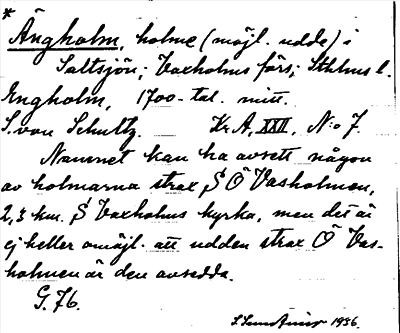 *
Ängholm, holme (möjl. udde) i
Saltsjön; Vaxholms förs; Sthlms l.
Engholm, 1700-tal. mitt.
S. von Schultz. Kr.A, XXII, N:o 7.
Namnet kan ha avsett någon
av holmarna strax S Ö Vasholmen,
2,3 km. S Vaxholms kyrka, men det är
ej heller omöjl. att udden strax Ö Vas-
holmen är den avsedda.
G.76.
1936.